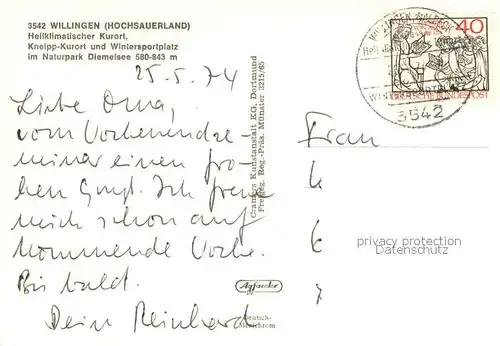 3542 WILLINGEN (HOCHSAUERLAND)
Heilklimatischer Kurort,
Kneipp-Kurort und Wintersportplatz
im Naturpark Diemelsee 580-843 m
25.5.74
Liebe Oma,
vom Wochenendse-
minar einen fro-
hen Gruß. Ich freue
mich schon auf
kommende Woche.
Bis bald.
Dein Reinhard
Cramers Kunstanstalt KG, Dortmund
Freigeg. Reg.-Präs. Münster 3215/65
Agfacolor
Deutsch-
40
DEUTSCHE BUNDESPOST
WILLINGEN WALDECK
3542
Frau
privacy protection
Datenschutz